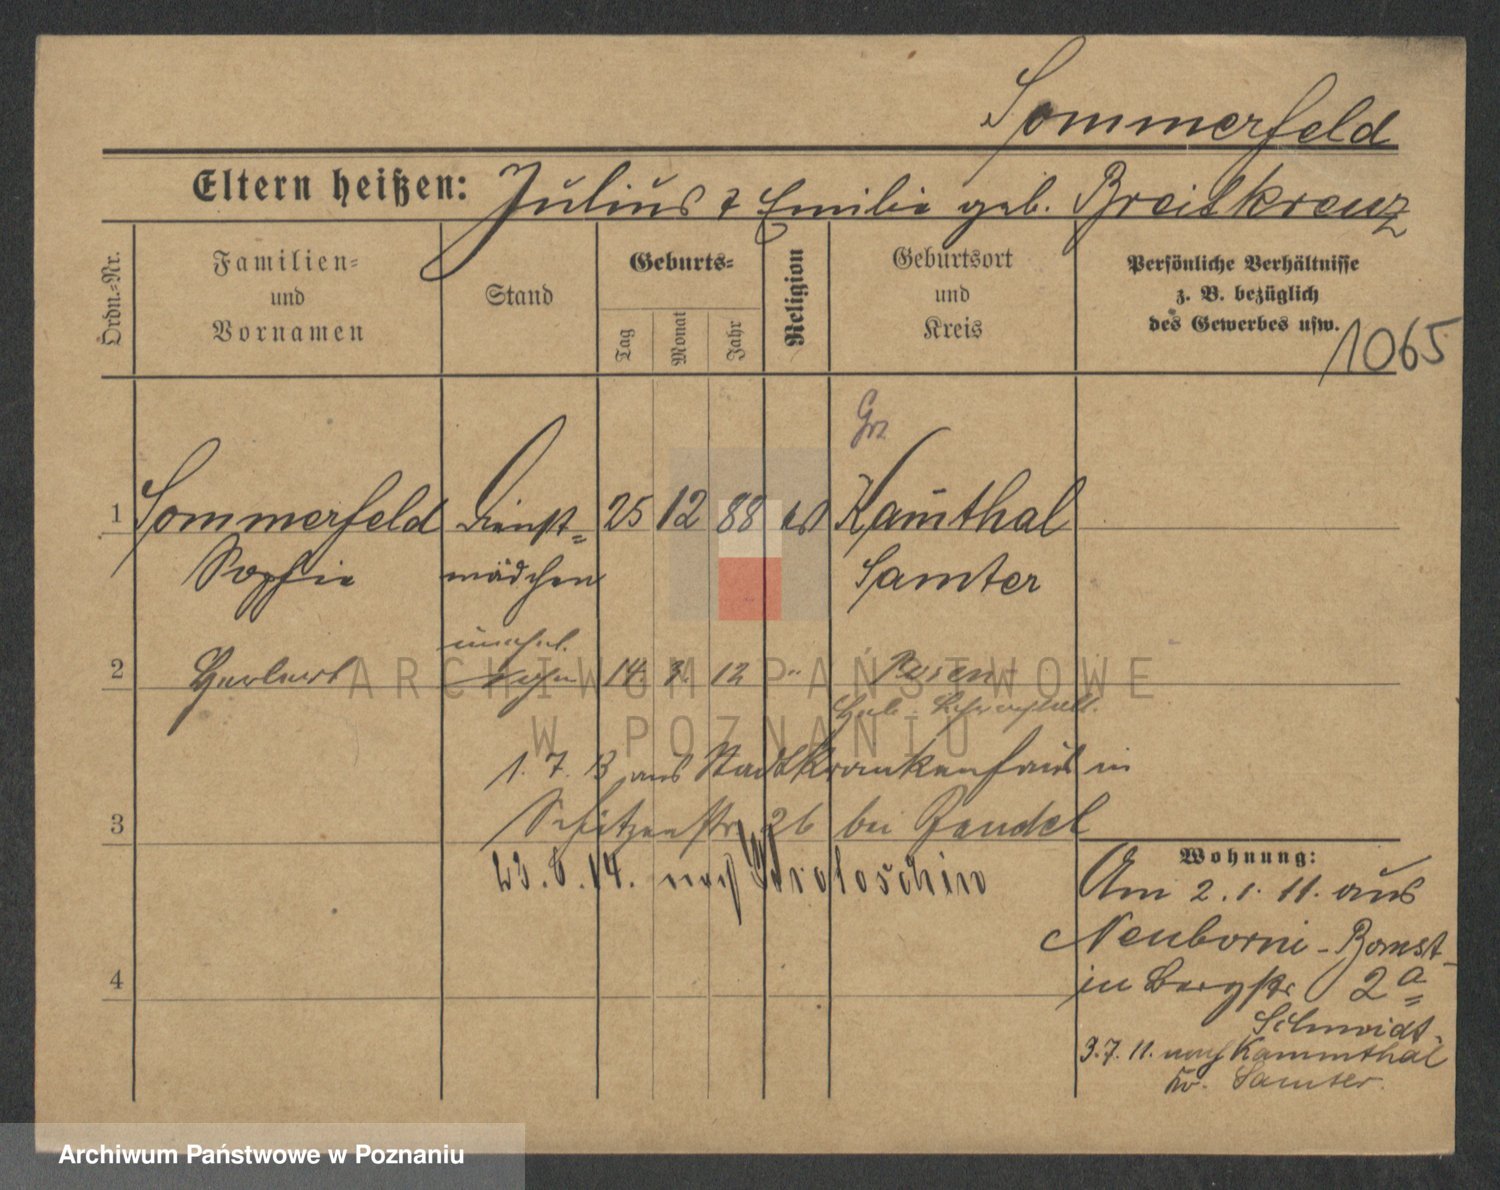 Sommerfeld
Eltern heißen: Julius & Emilie geb. Breitkreuz
Ordn.-Nr.
Familien-
und
Vornamen
Stand
Geburts-
Tag
Monat
Jahr
Religion
Geburtsort
und
Kreis
Persönliche Verhältnisse
z. B. bezüglich
des Gewerbes usw.
1065
Gr.
1 Sommerfeld Dienst- 25 12 88 ev Kam̅thal
Sophie mädchen Samter
unehel.
2 Herbert Sohn 14. 3. 12 " Posen
Heb. Lehranstalt.
1. 7. 13 aus Stadtkrankenhaus in
3 Schützenstr 26 bei Zeudel
23. 6. 14. nach Krotoschin
4
Wohnung:
Am 2. 1. 11. aus
Neuborui - Bomst
in Bergstr 2a
Schmidt.
3. 7. 11. nach Kammthal
Kr. Samter.
ARCHIWUM PAŃSTWOWE
W POZNANIU
Archiwum Państwowe w Poznaniu